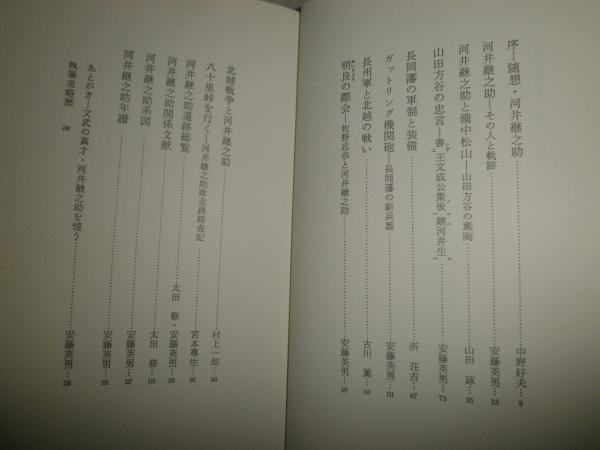 序―随想・河井継之助……中野好夫… 9
河井継之助―その人と軌跡……安藤英男… 13
河井継之助と備中松山―山田方谷の薫陶……山田 琢… 35
山田方谷の忠言―書「王文成公集後」贈河井生……安藤英男… 73
長岡藩の軍制と装備……所 荘吉… 87
ガットリング機関砲―長岡藩の新兵器……安藤英男…
長州軍と北越の戦い……古川 薫…
明良の際会―牧野忠恭と河井継之助……安藤英男…
北越戦争と河井継之助……村上一郎…
八十里峠を行く―河井継之助敗走路踏査記……宮本尊生…
河井継之助遺跡総覧……太田 修・安藤英男…
河井継之助関係文献……太田 修…
河井継之助系図……安藤英男…
河井継之助年譜……安藤英男…
あとがき―文武の真才・河井継之助を憶う……安藤英男…
執筆者略歴